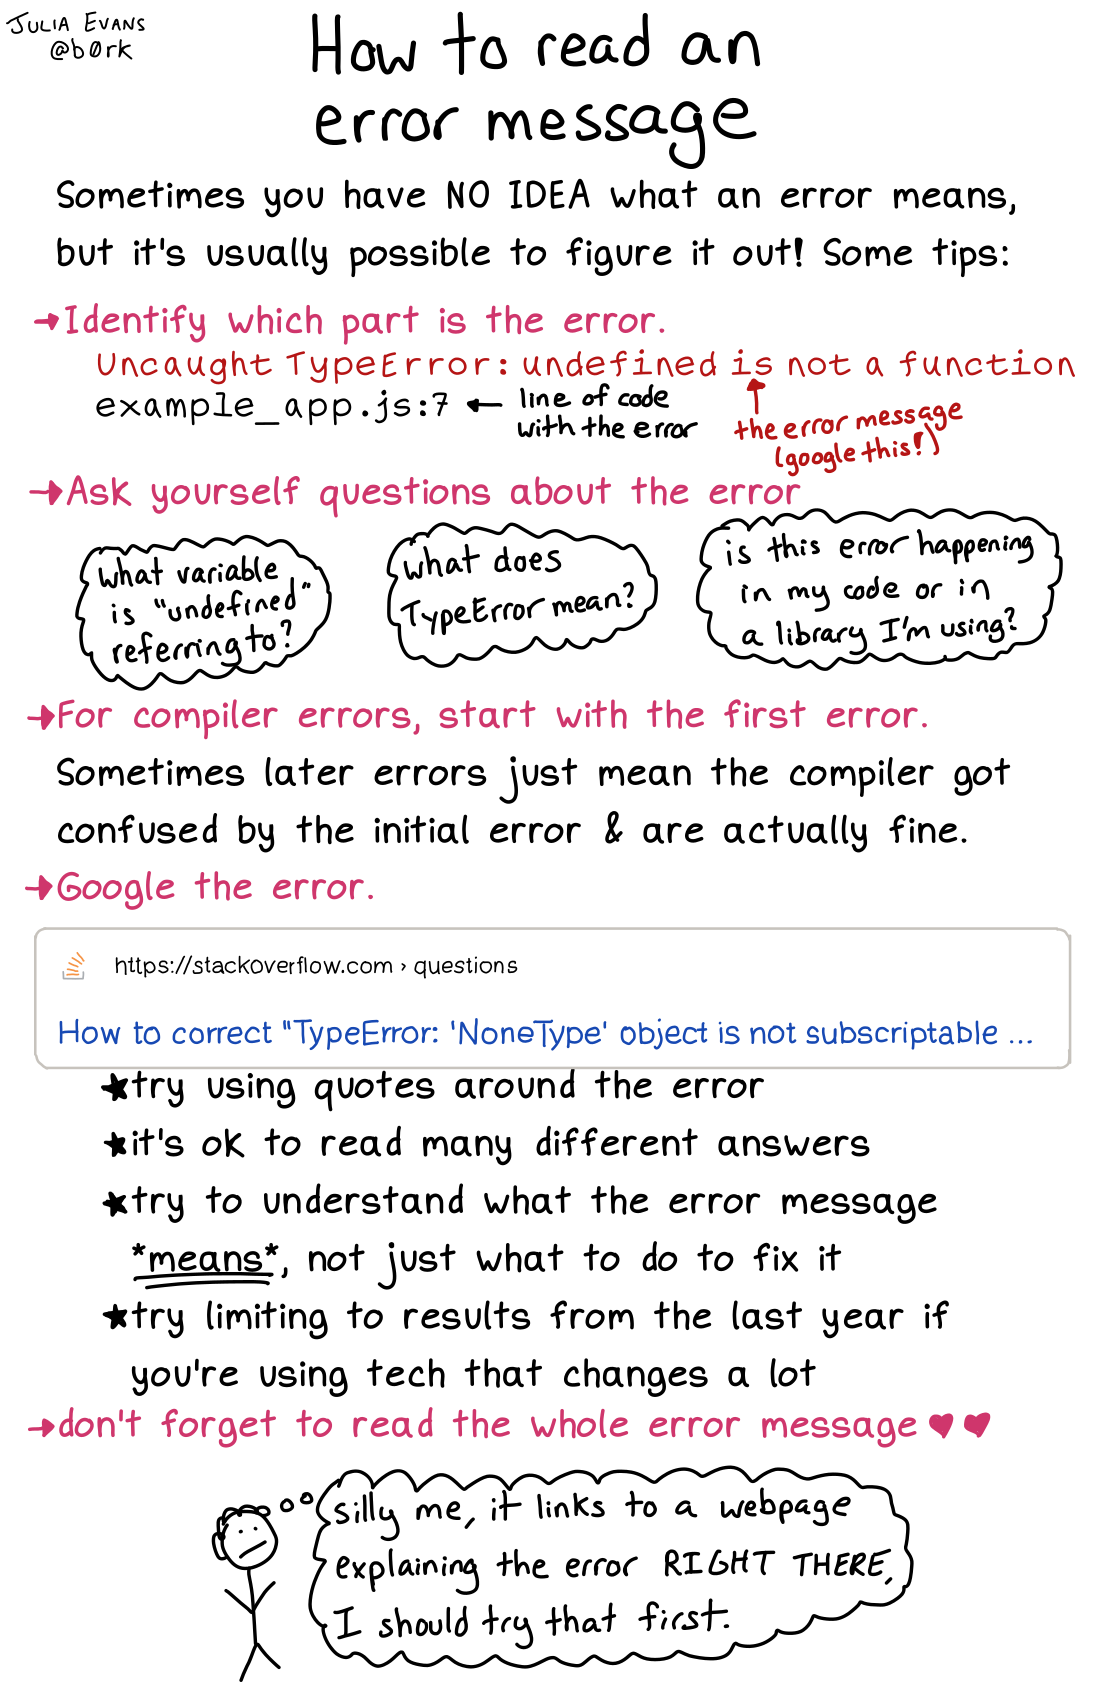 JULIA EVANS
@b0rk
How to read an
error message
Sometimes you have NO IDEA what an error means,
but it's usually possible to figure it out! Some tips:
→Identify which part is the error.
Uncaught TypeError: undefined is not a function
example_app.js:7 ← line of code
with the error
the error message
(google this!)
→Ask yourself questions about the error
what variable
is "undefined"
referring to?
what does
TypeError mean?
is this error happening
in my code or in
a library I'm using?
→For compiler errors, start with the first error.
Sometimes later errors just mean the compiler got
confused by the initial error & are actually fine.
→Google the error.
https://stackoverflow.com › questions
How to correct "TypeError: 'NoneType' object is not subscriptable ...
★try using quotes around the error
★it's ok to read many different answers
★try to understand what the error message
*means*, not just what to do to fix it
★try limiting to results from the last year if
you're using tech that changes a lot
→don't forget to read the whole error message ♥♥
silly me, it links to a webpage
explaining the error RIGHT THERE,
I should try that first.